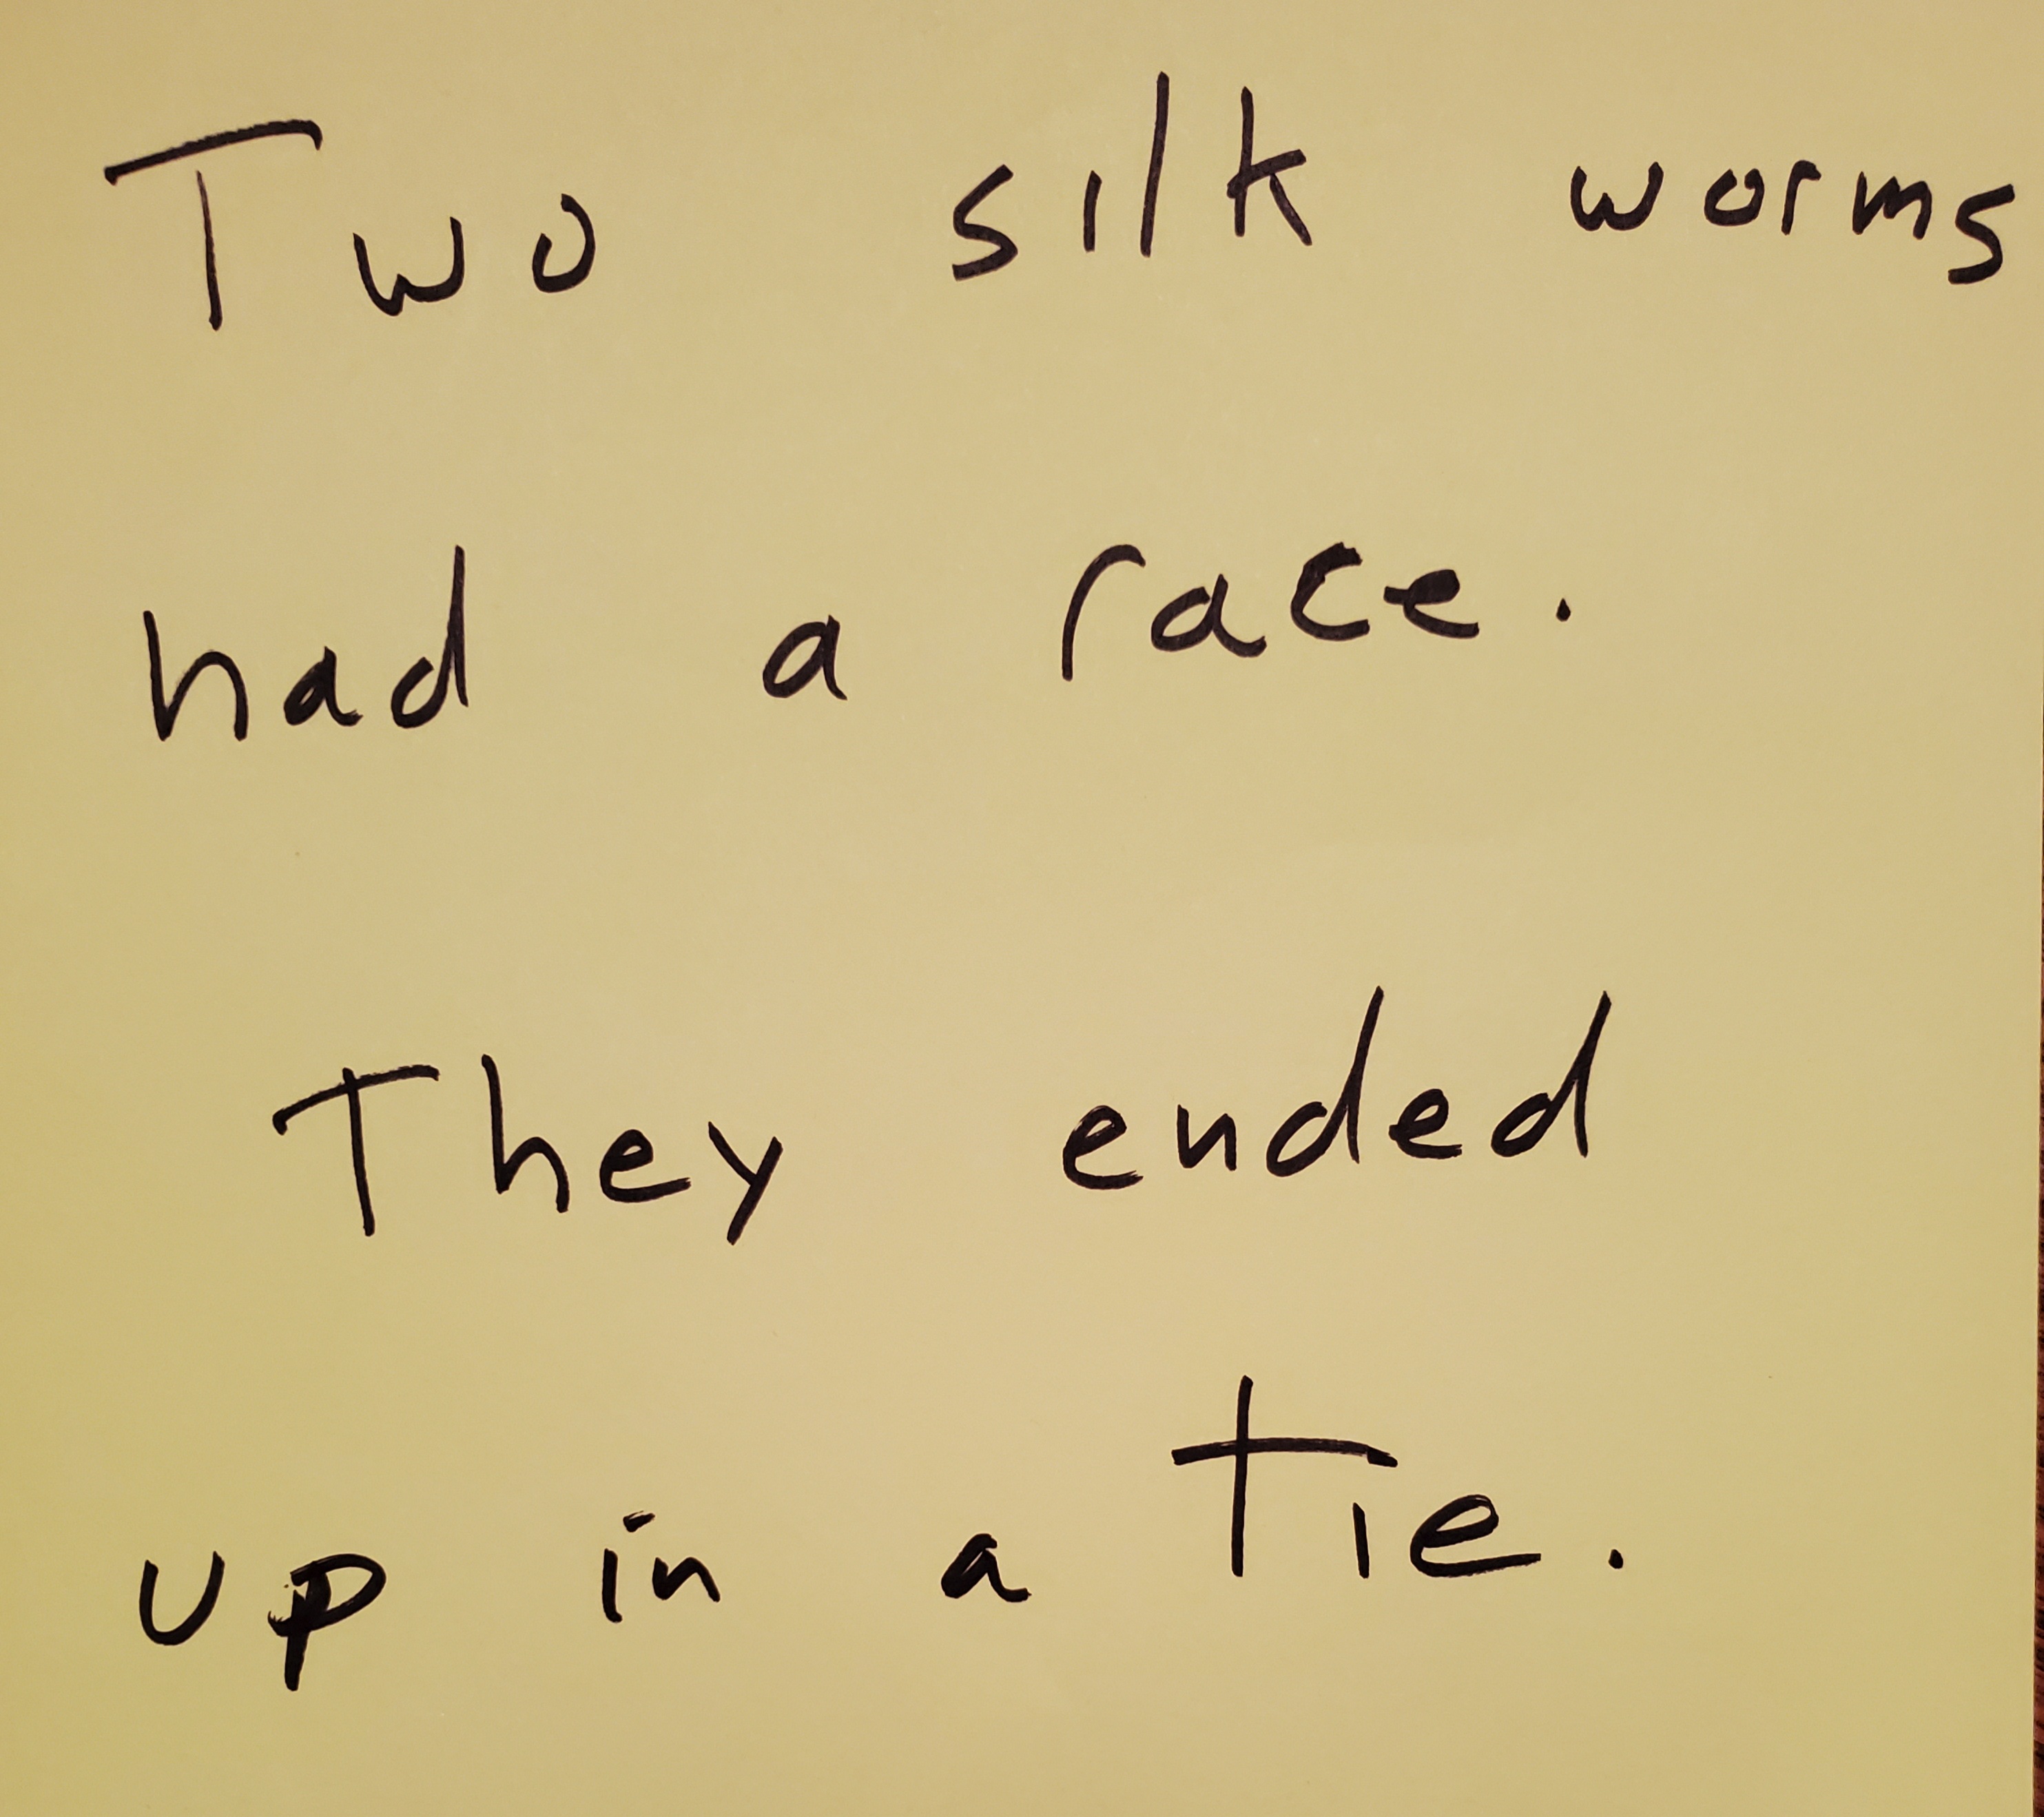 Two silk worms
had a race.
They ended
up in a tie.